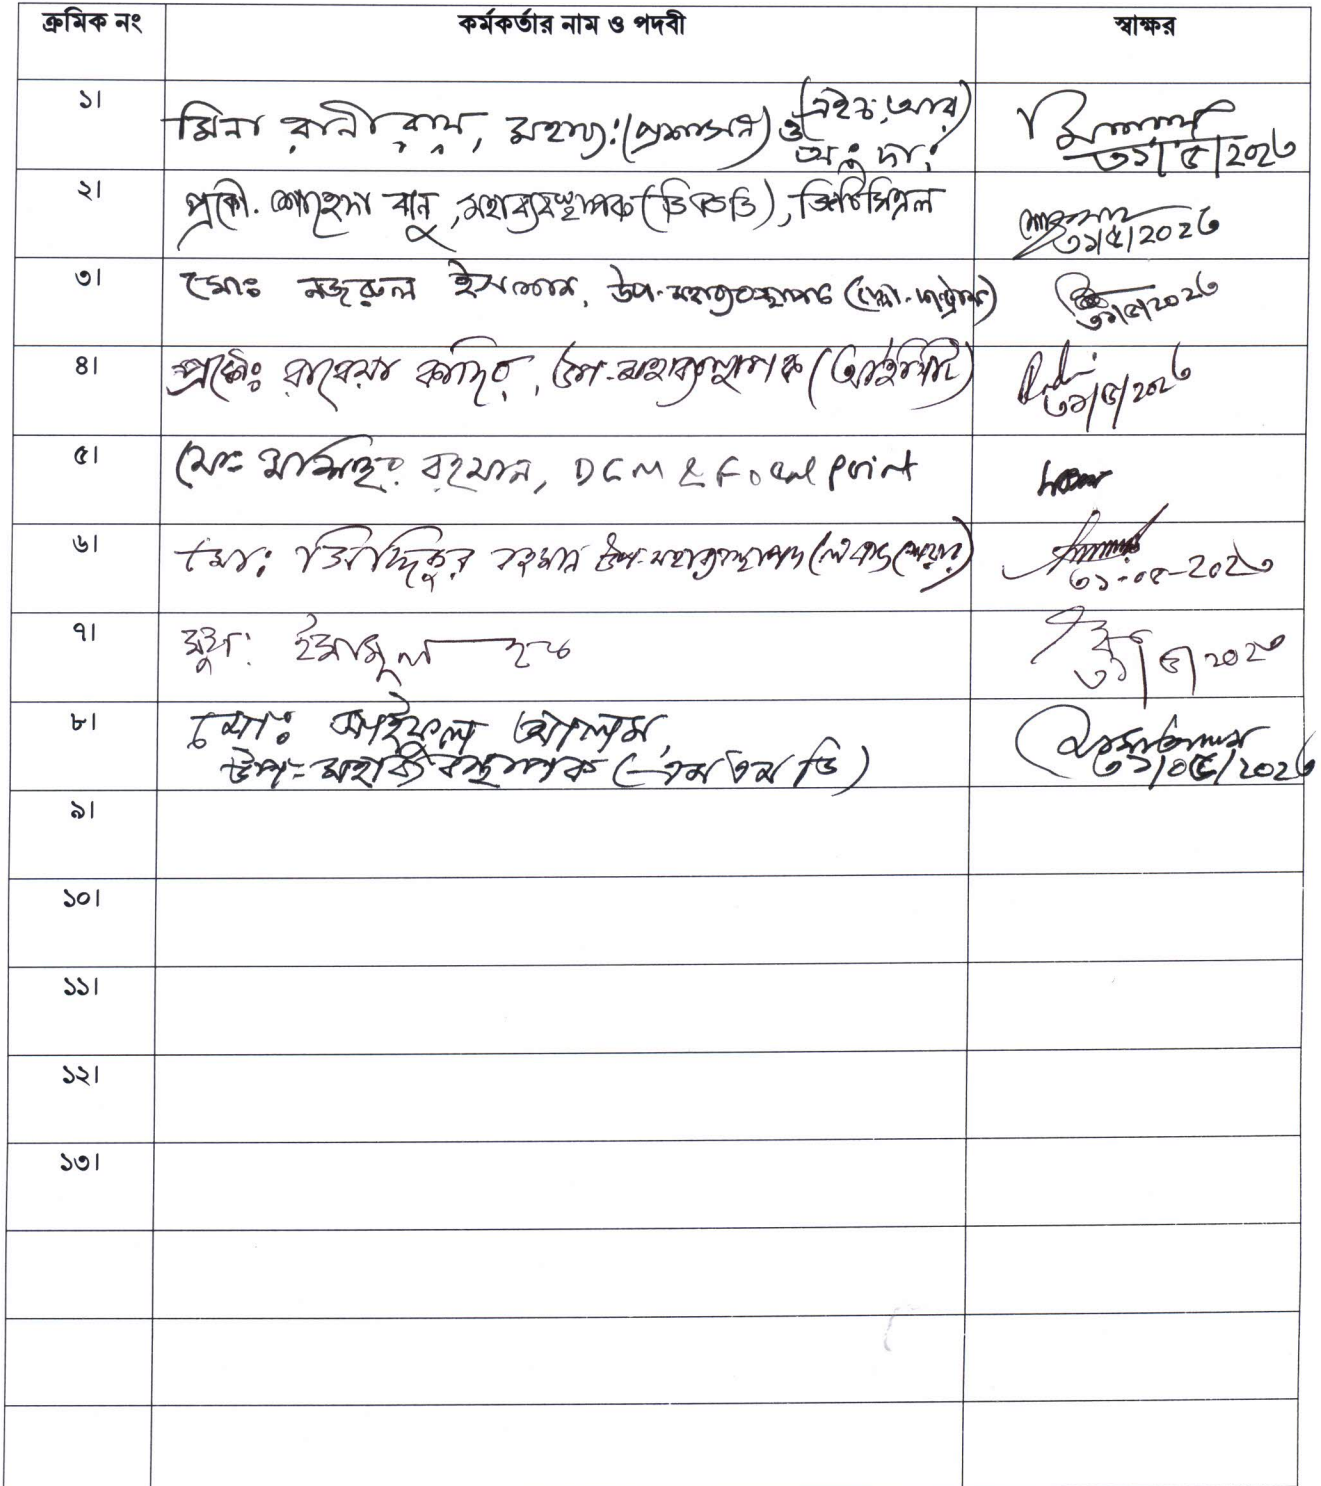 ক্রমিক নং কর্মকর্তার নাম ও পদবী স্বাক্ষর
১। মিনা রানী রায়, মহাব্য:(প্রশাসন) ও (এইচ,আর) অ: দা:
৩১/৫/২০২৩
২। প্রকৌ. শাহেদা বানু, মহাব্যবস্থাপক (ডিএন্ডডি), জিটিসিএল
৩১/৫/২০২৩
৩। মোঃ নজরুল ইসলাম, উপ-মহাব্যবস্থাপক
৩১/৫/২০২৩
৪। প্রকৌঃ রাবেয়া কাদির, উপ-মহাব্যবস্থাপক (আইসিটি)
৩১/৫/২০২৩
৫। মোঃ রহমান, DGM & Focal point
৬। মোঃ সিদ্দিকুর রহমান উপ-মহাব্যবস্থাপক
৩১-০৫-২০২৩
৭। মুহা: ইমামুল হক
৩১/৫/২০২৩
৮। মোঃ সাইফুল আলম,
উপ-মহাব্যবস্থাপক (এম এম ডি)
৩১/০৫/২০২৩
৯।
১০।
১১।
১২।
১৩।